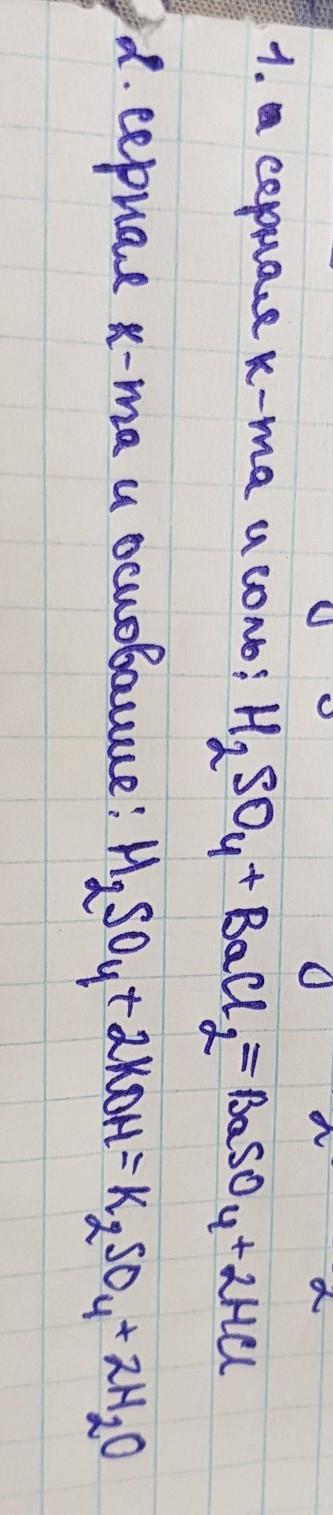 1. серная к-та и соль: H₂SO₄ + BaCl₂ = BaSO₄ + 2HCl
2. серная к-та и основание: H₂SO₄ + 2KOH = K₂SO₄ + 2H₂O